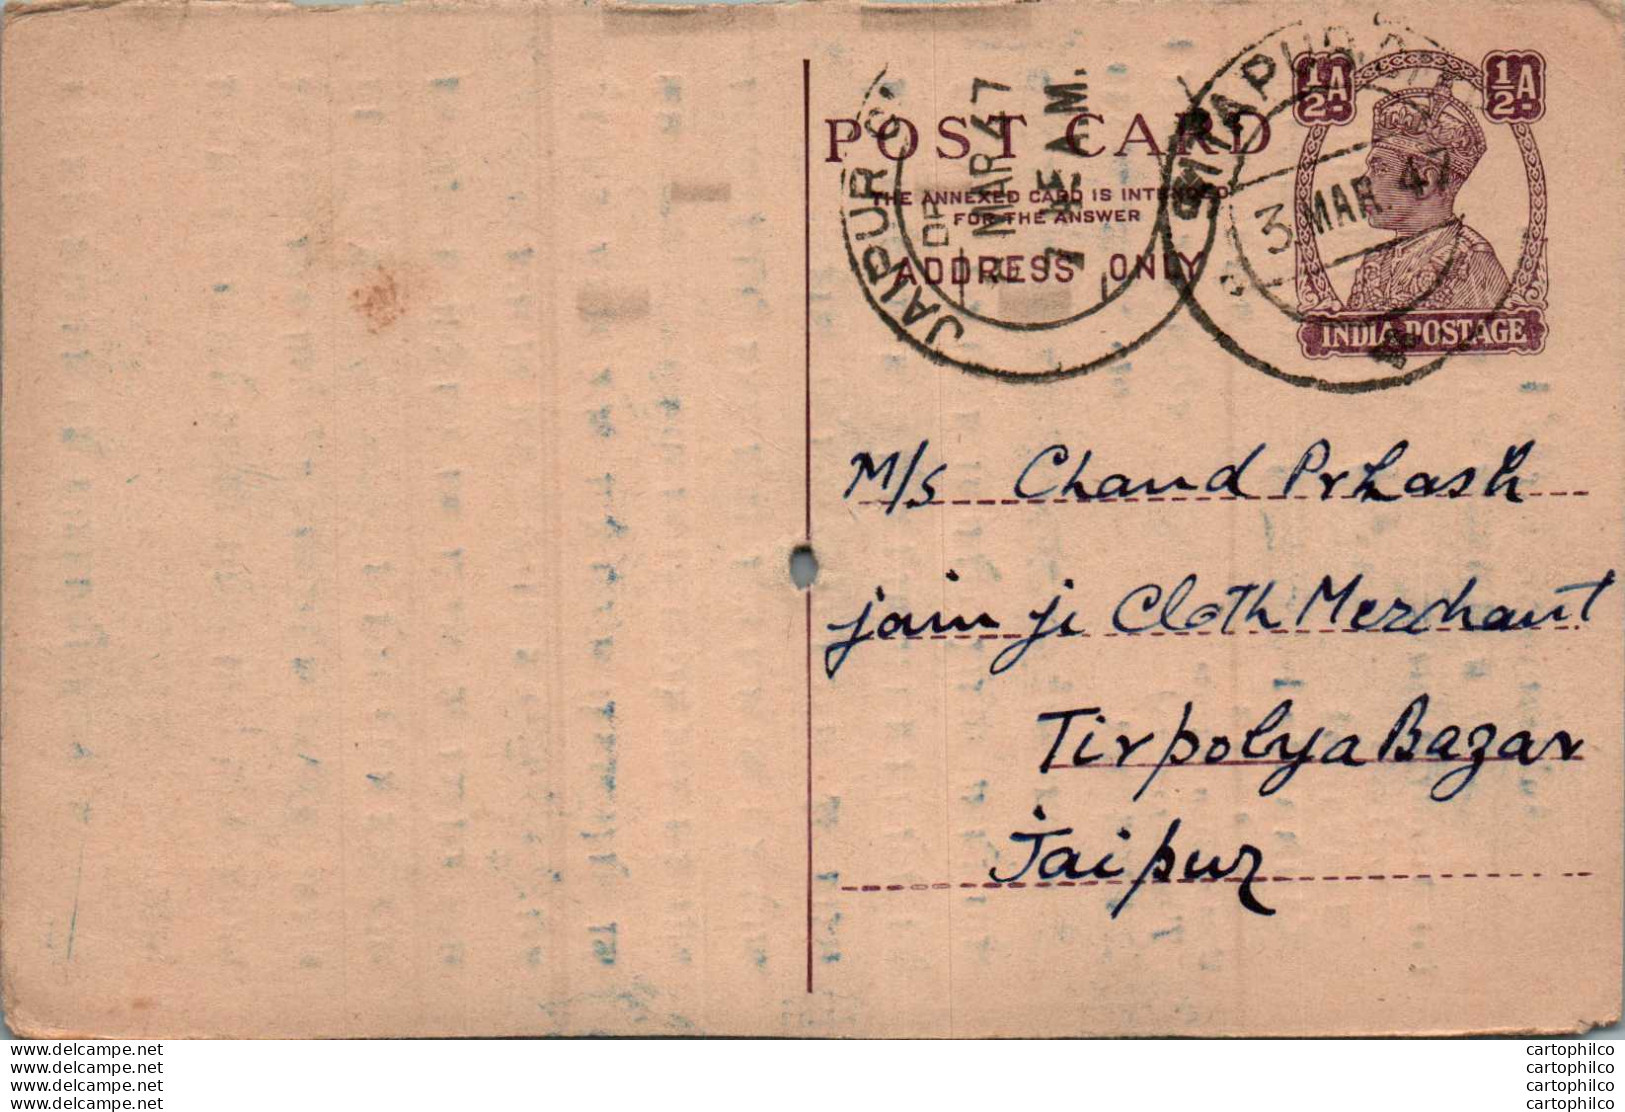 ½A ½A
POST CARD
THE ANNEXED CARD IS INTENDED
FOR THE ANSWER
ADDRESS ONLY
INDIA POSTAGE
JAIPUR
MAR 47
7 45 AM.
3 MAR. 47
M/s Chand Prkash
jain ji Cloth Merchant
Tirpolya Bazar
Jaipur
www.delcampe.net
www.delcampe.net
www.delcampe.net
www.delcampe.net
cartophilco
cartophilco
cartophilco
cartophilco